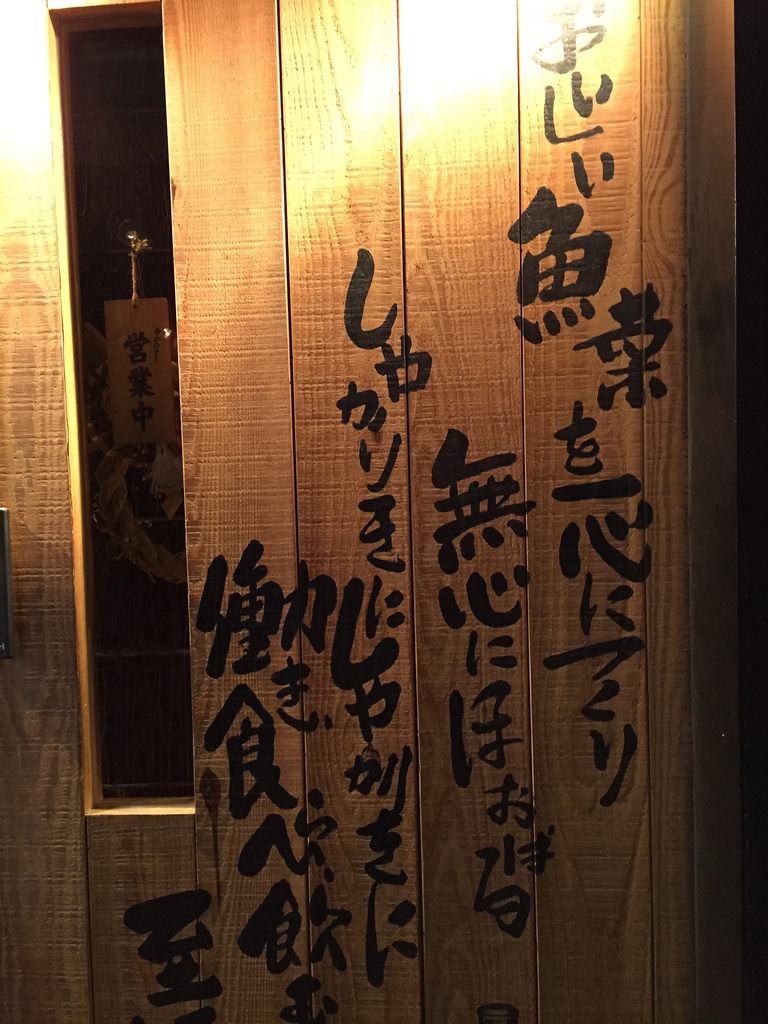 おいしい魚菜を一心につくり
無心にほおばる
しゃかりきに
しゃかりきに
働き、
食べ、飲
至
営業中